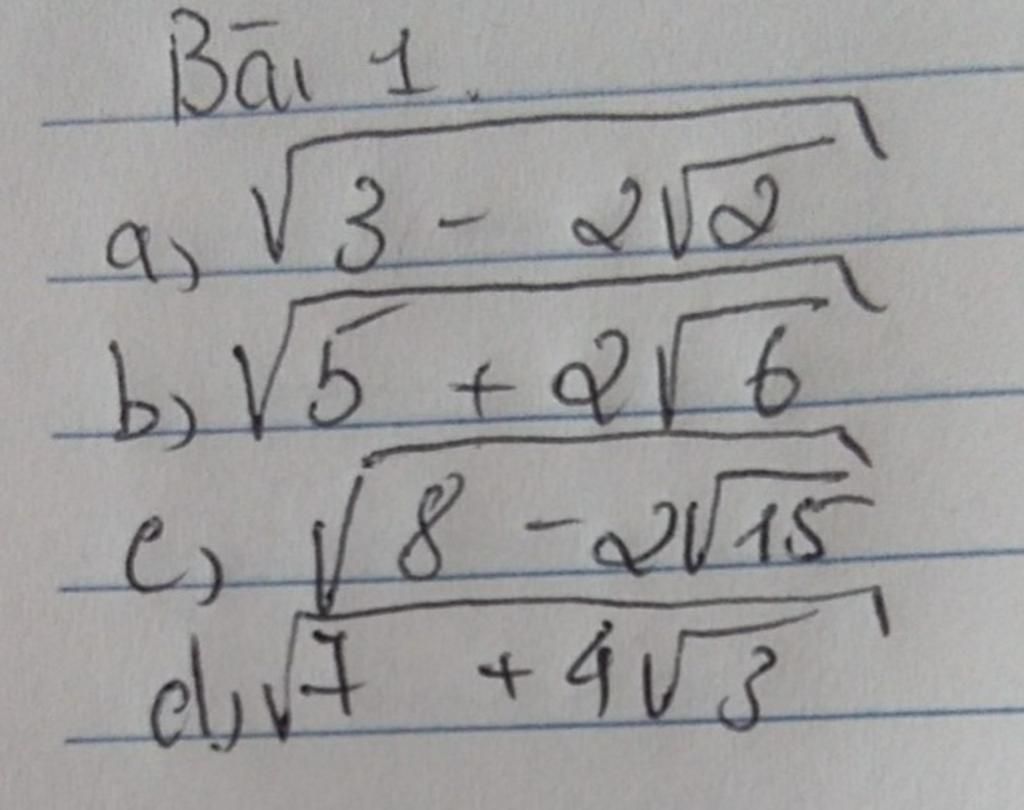 Bāi 1.
a, √(3 - 2√2)
b, √(5 + 2√6)
c, √(8 - 2√15)
d, √(7 + 4√3)